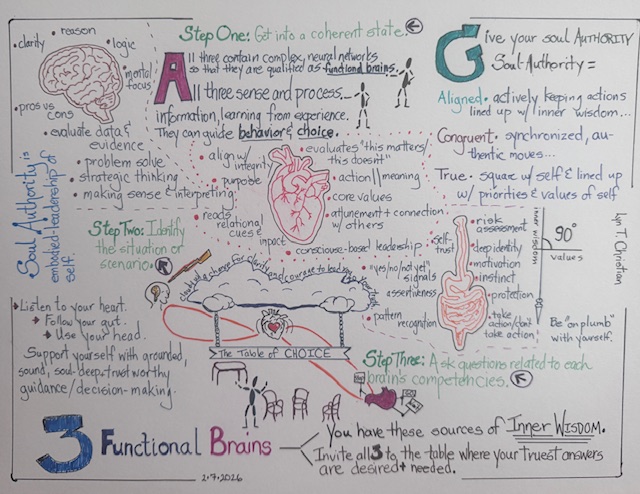 • reason
• clarity
• logic
• mental
focus
• pros vs
cons
• evaluate data &
evidence
• problem solve
• strategic thinking
• making sense & interpreting
Soul Authority is
embodied-leadership of
self.
Step One: Get into a coherent state.
All three contain complex neural networks
so that they are qualified as functional brains.
All three sense and process
information, learning from experience.
They can guide behavior & choice.
Give your soul AUTHORITY
Soul Authority =
Aligned • actively keeping actions
lined up w/ inner wisdom...
Congruent • synchronized, au-
thentic moves...
True • square w/ self & lined up
w/ priorities & values of self
• align w/
integrity
• purpose
• reads
relational
cues &
impact
• evaluates "this matters/
this doesn't"
• action || meaning
• core values
• attunement + connection
w/ others
• conscious-based leadership
Step Two: Identify
the situation or
scenario.
• self-
trust
• "yes/no/not yet"
signals
• assertiveness
• pattern
recognition
• risk
assessment
• deep identity
• motivation
• instinct
• protection
• take
action/don't
take action
inner wisdom
90°
values
Be "on plumb"
with yourself.
Lyn T. Christian
• Listen to your heart.
• Follow your gut.
• Use your head.
Support yourself with grounded,
sound, soul-deep + trustworthy
guidance/decision-making.
The Table of CHOICE
Step Three: Ask questions related to each
brain's competencies.
3 Functional Brains
You have these sources of Inner WISDOM.
Invite all 3 to the table where your truest answers
are desired + needed.
2.7.2026